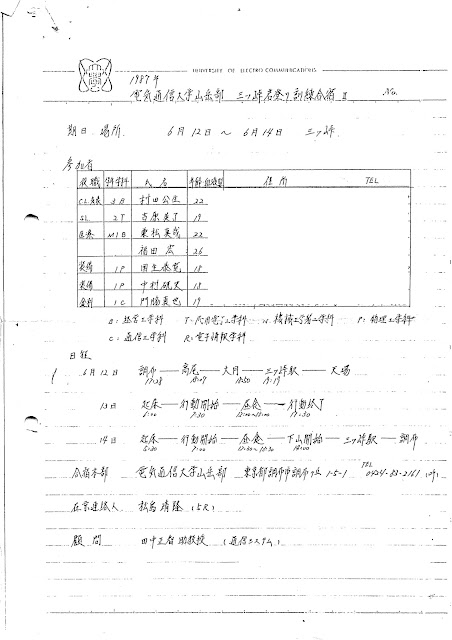 UNIVERSITY OF ELECTRO-COMMUNICATIONS
1987年
電気通信大学山岳部 三ッ峠岩登り訓練合宿 II No.
期日 場所 6月12日 〜 6月14日 三ッ峠
参加者
役職 学科 氏名 年齢 血液型 住所 TEL
CL 3B 村田公生 22
SL 2T 吉原 19
医療 M1B 22
福田 宏 26
装備 1P 18
装備 1P 中村 18
食料 1C 門脇直也 19
B = 経営工学科 T = 応用電子工学科 P = 物理工学科
C = 通信工学科 R = 電子情報学科
日程
6月12日 調布 — 高尾 — 大月 — 三ッ峠駅 — 天場
17:28 18:50 19:19
13日 起床 — 行動開始 — 昼食 — 行動終了
7:00 17:30
14日 起床 — 行動開始 — 昼食 — 下山開始 — 三ッ峠駅 — 調布
7:00 14:00
合宿本部 電気通信大学山岳部 東京都調布市調布ヶ丘 1-5-1 TEL 0424-83-2161
在京連絡人 松島 靖隆 (5R)
顧問 田中正智 助教授 (通信システム)